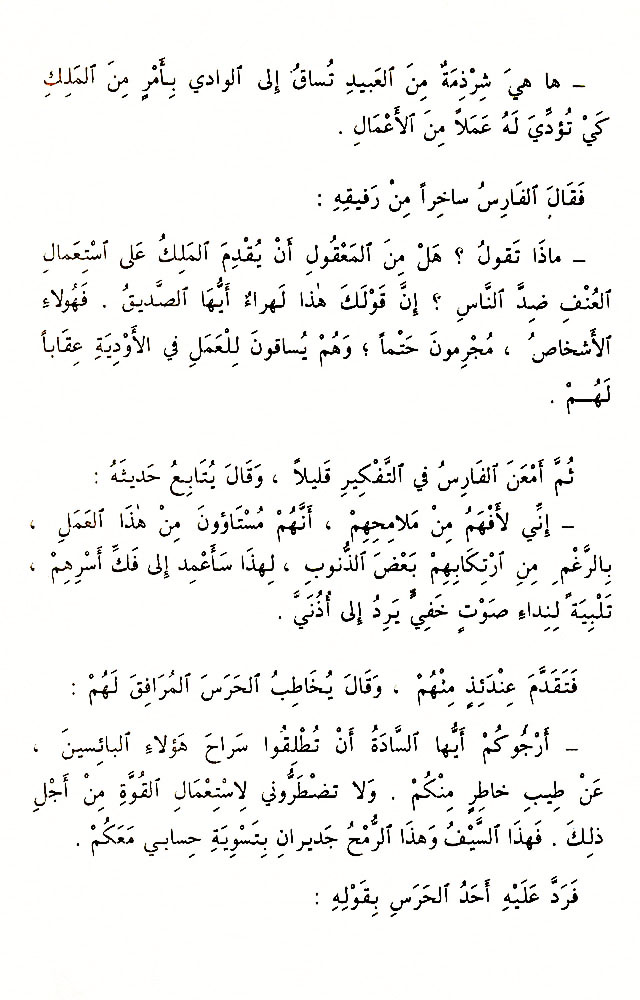 – ها هيَ شِرْذِمَةٌ مِنَ ٱلعَبيدِ تُساقُ إلى ٱلوادي بِأَمْرٍ مِنَ ٱلمَلِكِ
كَيْ تُؤدِّيَ لَهُ عَمَلاً مِنَ ٱلأَعْمَالِ .
فَقَالَ ٱلفَارِسُ ساخِراً مِنْ رَفيقِهِ :
– ماذَا تَقولُ ؟ هَلْ مِنَ ٱلمَعْقُولِ أَنْ يُقْدِمَ ٱلمَلِكُ عَلى ٱسْتِعَمالِ
ٱلعُنْفِ ضِدَّ ٱلنَّاسِ ؟ إنَّ قَوْلَكَ هٰذا لَهراءٌ أَيُّها ٱلصَّديقُ . فَهُولاءِ
ٱلأَشْخاصُ ، مُجْرِمونَ حَتْماً ؛ وَهُمْ يُساقونَ لِلْعَمَلِ في الأَوْدِيَةِ عِقَاباً
لَهُـمْ .
ثُمَّ أَمْعَنَ ٱلفَارِسُ في ٱلتَّفْكِيرِ قَليلاً ، وَقَالَ يُتَابِعُ حَديثَهُ :
– إنِّي لأَفْهَمُ مِنْ مَلامِحِهِمْ ، أَنَّهُمْ مُسْتَاؤونَ مِنْ هٰذَا ٱلعَمَلِ ،
بِالرَّغْمِ مِنِ ٱرْتِكَابِهِمْ بَعْضَ ٱلذُّنوبِ ، لِهذَا سَأَعْمِد إلى فَكِّ أَسْرِهِمْ ،
تَلْبِيَةً لِنِداءِ صَوْتٍ خَفِيٍّ يَرِدُ إلى أُذُنَيَّ .
فَتَقَدَّمَ عِنْدَئِذٍ مِنْهُمْ ، وَقَالَ يُخَاطِبُ ٱلحَرَسَ ٱلمُرَافِقَ لَهُمْ :
– أَرْجُوكُمْ أَيُّها ٱلسَّادَةُ أَنْ تُطْلِقُوا سَراحَ هَؤلاءِ ٱلبائِسينَ ،
عَنْ طيبِ خاطِرٍ مِنكُمْ . وَلا تضْطَرُّوني لِاسْتِعْمالِ ٱلقُوَّةِ مِنْ أَجْلِ
ذلِكَ . فَهذَا ٱلسَّيْفُ وَهذَا ٱلرُّمْحُ جَديرانِ بِتَسْوِيَةِ حِسابي مَعَكُمْ .
فَرَدَّ عَلَيْهِ أَحَدُ ٱلحَرَسِ بِقَوْلِهِ :